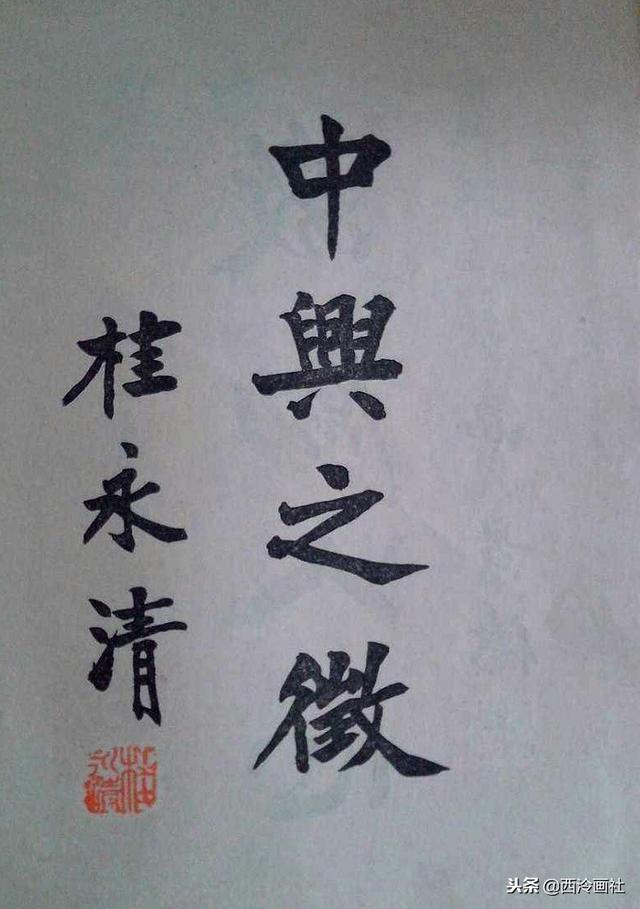 中興之徵
桂永清
桂永清
头条 @西泠画社